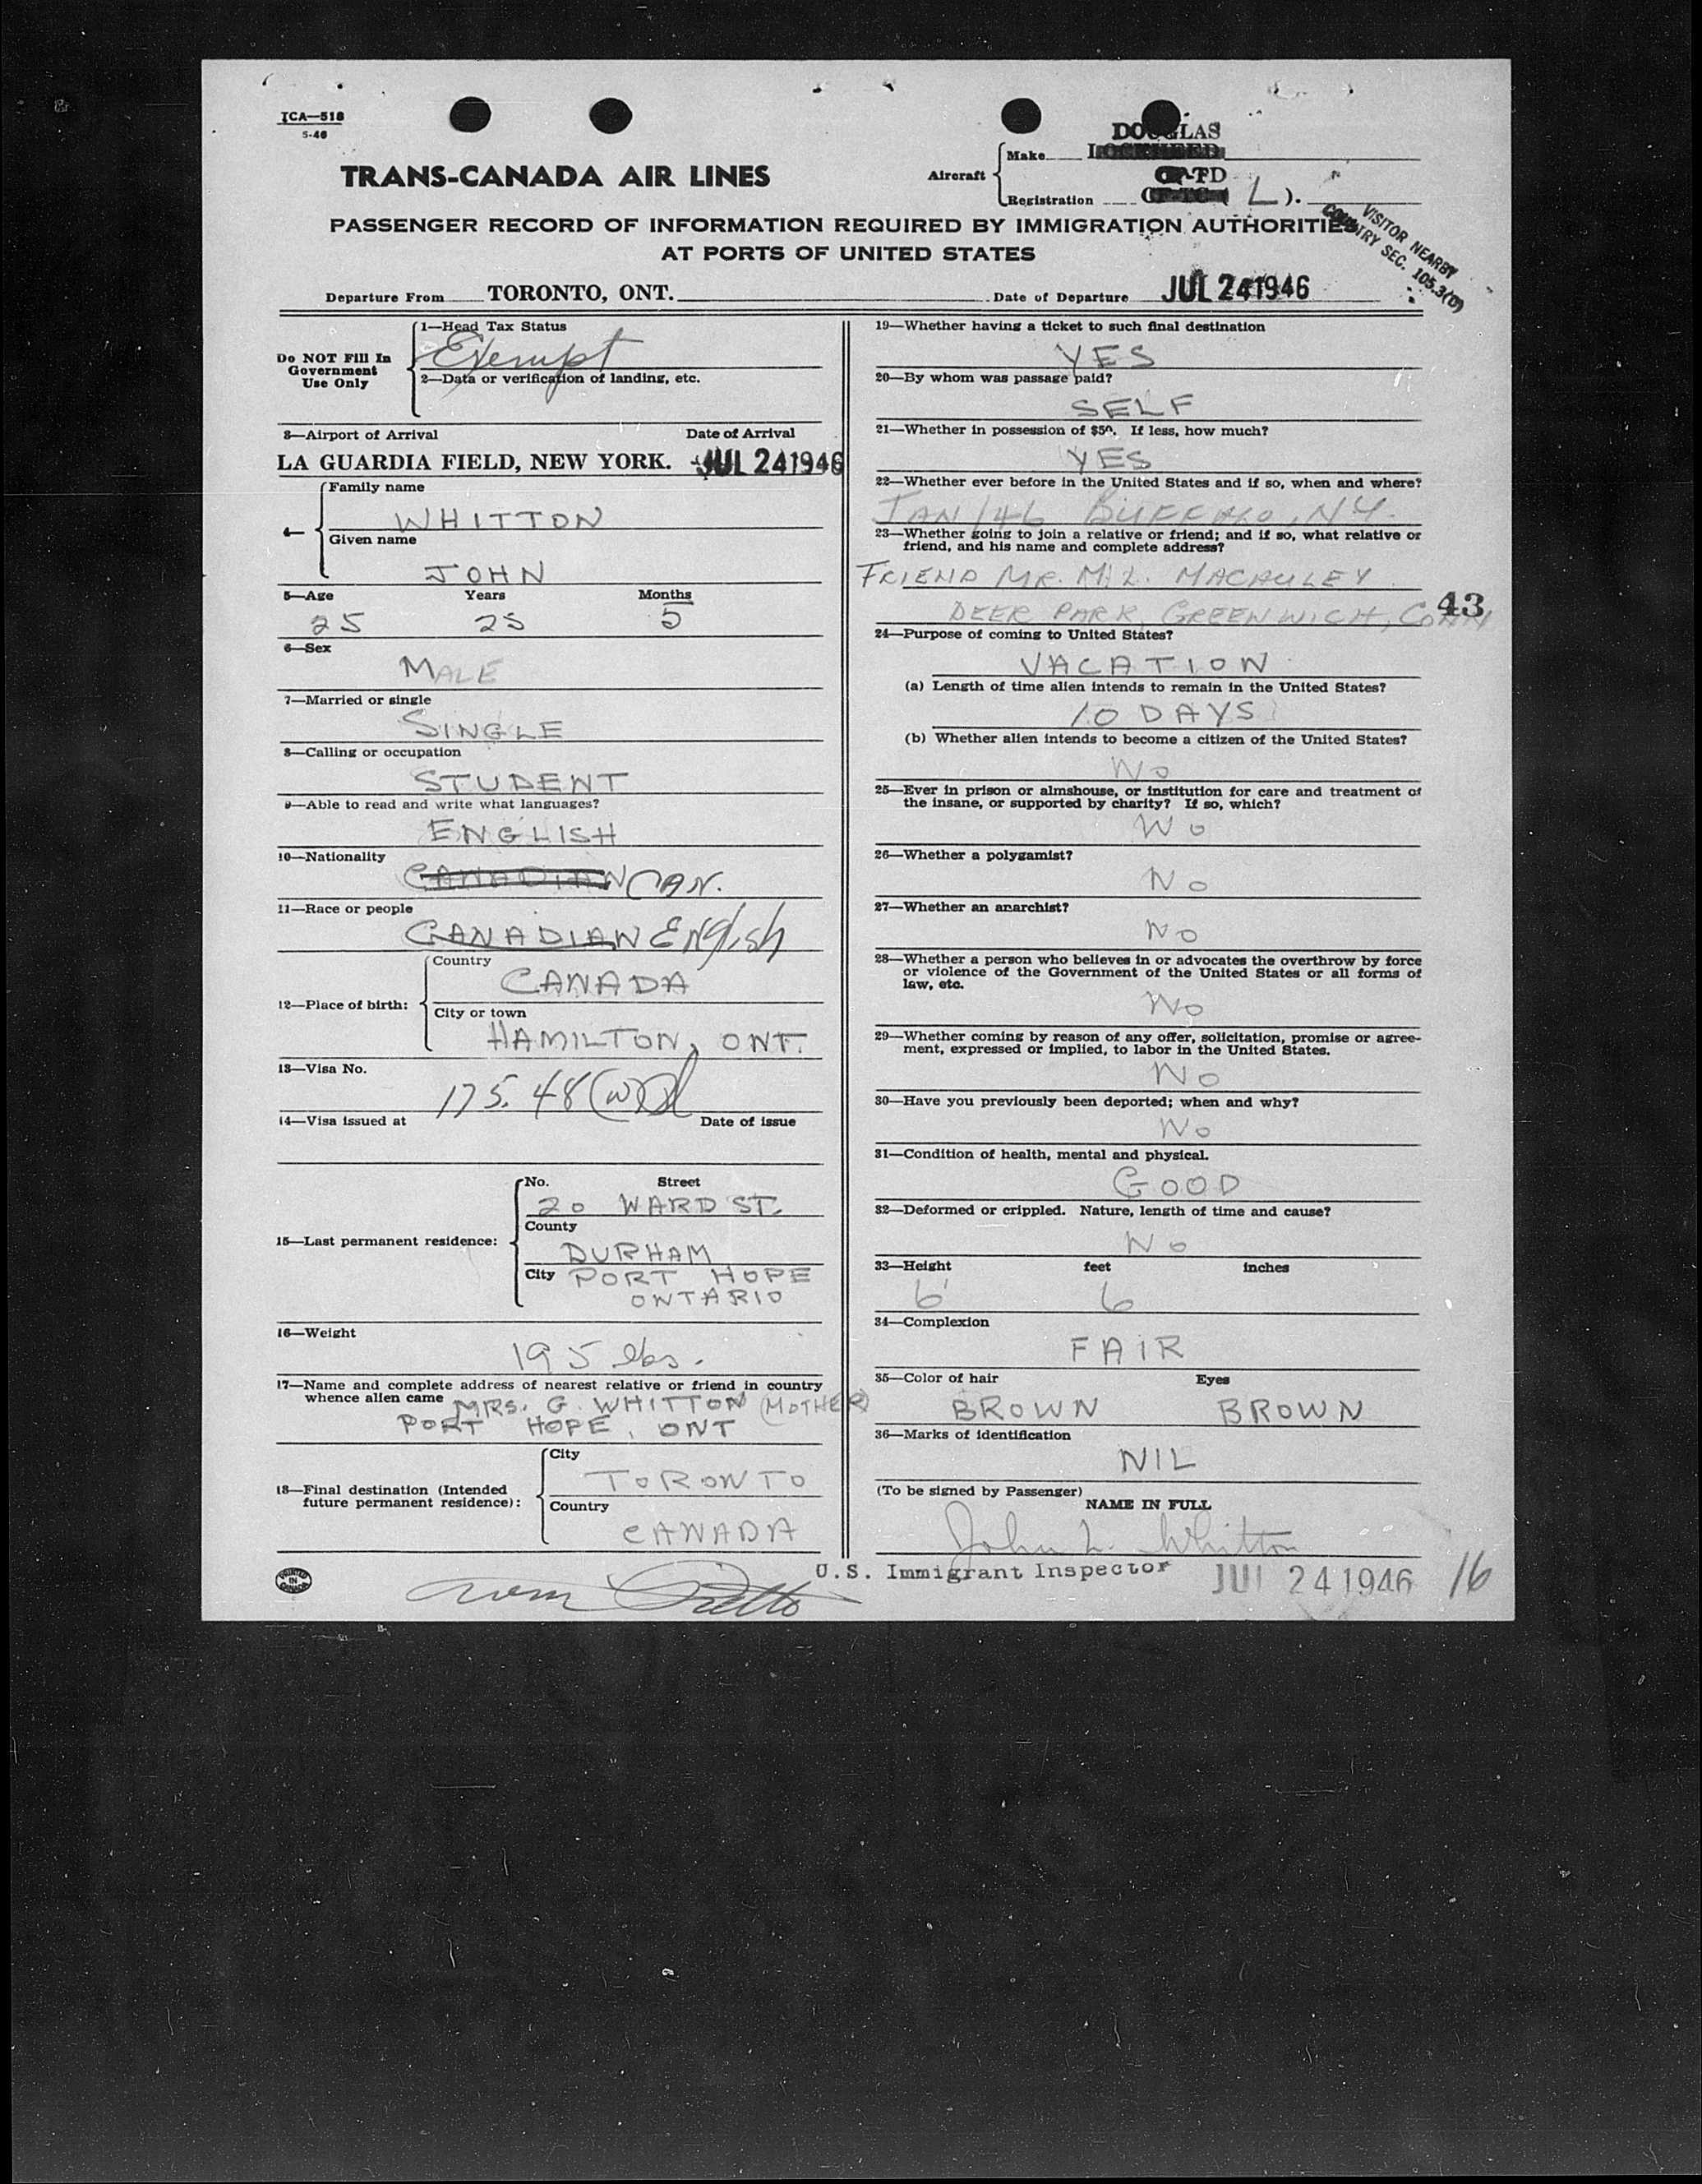 TCA—518
5-46
DOUGLAS
Make LOCKHEED
TRANS-CANADA AIR LINES
Aircraft
CF-TD
Registration L ).
PASSENGER RECORD OF INFORMATION REQUIRED BY IMMIGRATION AUTHORITIES
AT PORTS OF UNITED STATES
VISITOR NEARBY
COUNTRY SEC. 105.3(D)
Departure From TORONTO, ONT. Date of Departure JUL 24 1946
Do NOT Fill In
Government
Use Only
1—Head Tax Status
Exempt
2—Data or verification of landing, etc.
3—Airport of Arrival Date of Arrival
LA GUARDIA FIELD, NEW YORK. JUL 24 1946
Family name
WHITTON
Given name
JOHN
5—Age Years Months
25 25 5
6—Sex
MALE
7—Married or single
SINGLE
8—Calling or occupation
STUDENT
9—Able to read and write what languages?
ENGLISH
10—Nationality
CANADIAN CAN.
11—Race or people
CANADIAN English
12—Place of birth:
Country
CANADA
City or town
HAMILTON, ONT.
13—Visa No.
175.48
14—Visa issued at Date of issue
15—Last permanent residence:
No. Street
20 WARD ST.
County
DURHAM
City PORT HOPE
ONTARIO
16—Weight
195 lbs.
17—Name and complete address of nearest relative or friend in country
whence alien came MRS. G. WHITTON (MOTHER)
PORT HOPE, ONT
18—Final destination (Intended
future permanent residence):
City
TORONTO
Country
CANADA
19—Whether having a ticket to such final destination
YES
20—By whom was passage paid?
SELF
21—Whether in possession of $50. If less, how much?
YES
22—Whether ever before in the United States and if so, when and where?
JAN/46 BUFFALO, NY.
23—Whether going to join a relative or friend; and if so, what relative or
friend, and his name and complete address?
FRIEND MR. M.L. MACAULEY
DEER PARK, GREENWICH, CONN
43
24—Purpose of coming to United States?
VACATION
(a) Length of time alien intends to remain in the United States?
10 DAYS
(b) Whether alien intends to become a citizen of the United States?
NO
25—Ever in prison or almshouse, or institution for care and treatment of
the insane, or supported by charity? If so, which?
NO
26—Whether a polygamist?
NO
27—Whether an anarchist?
NO
28—Whether a person who believes in or advocates the overthrow by force
or violence of the Government of the United States or all forms of
law, etc.
NO
29—Whether coming by reason of any offer, solicitation, promise or agree-
ment, expressed or implied, to labor in the United States.
NO
30—Have you previously been deported; when and why?
NO
31—Condition of health, mental and physical.
GOOD
32—Deformed or crippled. Nature, length of time and cause?
NO
33—Height feet inches
6' 6
34—Complexion
FAIR
35—Color of hair Eyes
BROWN BROWN
36—Marks of identification
NIL
(To be signed by Passenger)
NAME IN FULL
John L. Whitton
PRINTED IN CANADA
U.S. Immigrant Inspector JUL 24 1946 16